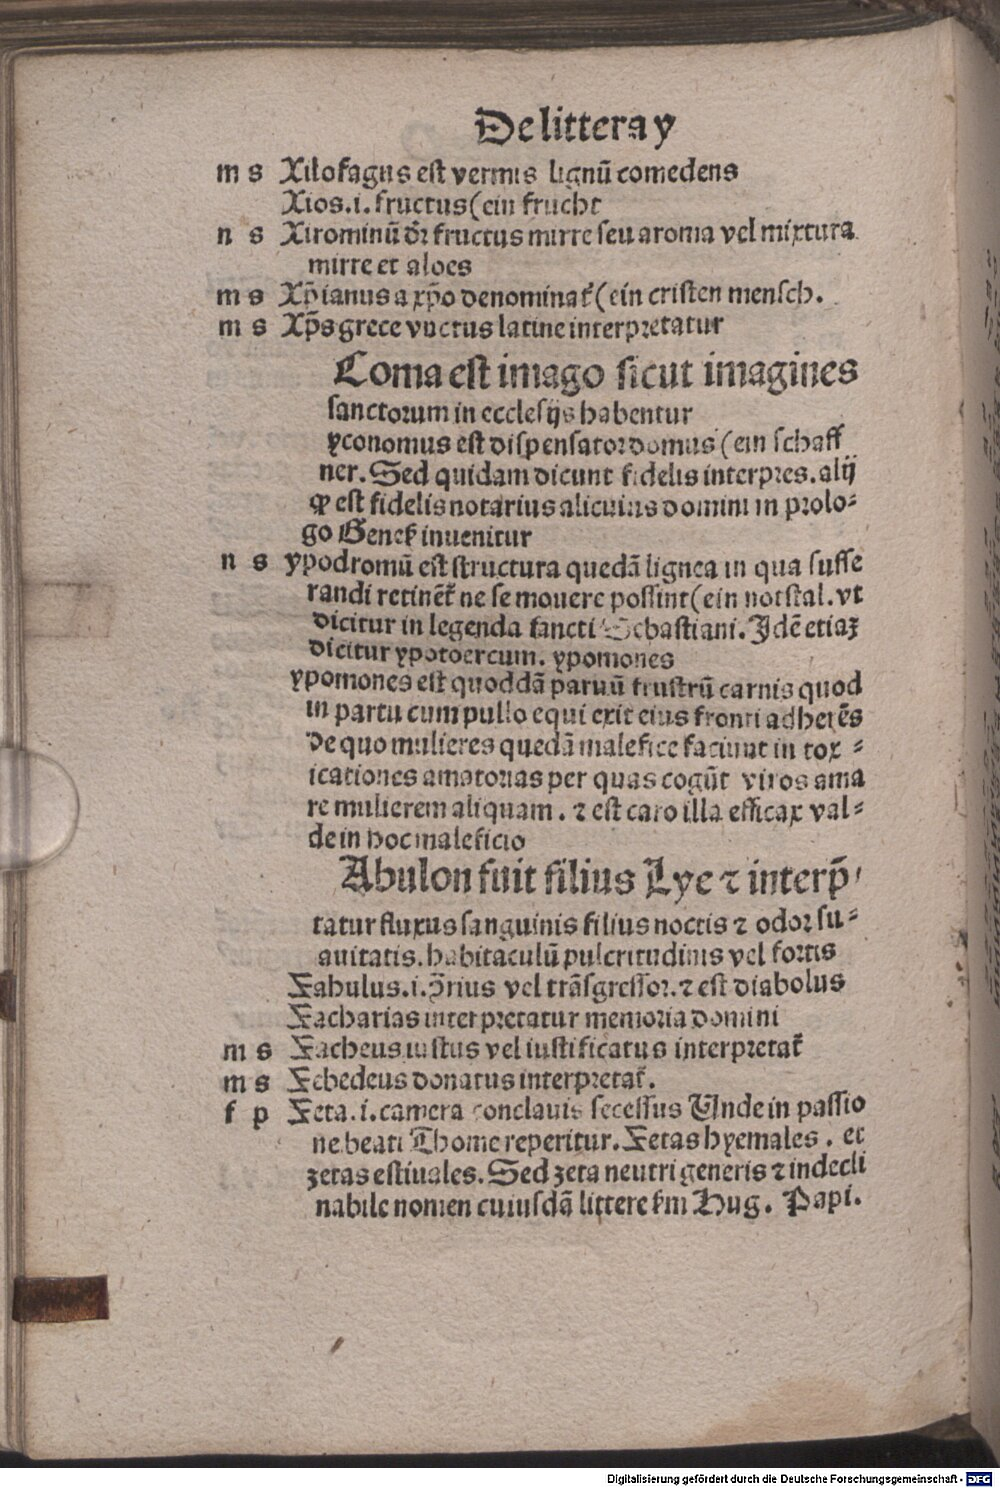 De littera y
m s Xilofagus est vermis lignū comedens
Xios.i. fructus (ein frucht
n s Xirominū dr̄ fructus mirre seu aroma vel mixtura
mirre et aloes
m s Xp̄ianus a xp̄o denominat᷑ (ein cristen mensch.
m s Xp̄s grece vnctus latine interpretatur
Ycoma est imago sicut imagines
sanctorum in ecclesijs habentur
yconomus est dispensator domus (ein schaff
ner. Sed quidam dicunt fidelis interpres. alij
ꝙ est fidelis notarius alicuius domini in prolo⸗
go Genes̄ inuenitur
n s ypodromū est structura quedā lignea in qua suffe
randi retinēt᷑ ne se mouere possint (ein notstal. vt
dicitur in legenda sancti Sebastiani. Jdē etiaꝫ
dicitur ypotoercum. ypomones
ypomones est quoddā paruū frustrū carnis quod
in partu cum pullo equi exit eius fronti adherēs
De quo mulieres quedā malefice faciunt in tox⸗
icationes amatorias per quas cogūt viros ama
re mulierem aliquam. ⁊ est caro illa efficax val⸗
de in hoc maleficio
Abulon fuit filius Lye ⁊ interp̄
tatur fluxus sanguinis filius noctis ⁊ odor su⸗
auitatis. habitaculū pulcritudinis vel fortis
Zabulus.i. ꝯ̄rius vel trāsgressor. ⁊ est diabolus
Zacharias interpretatur memoria domini
m s Zacheus iustus vel iustificatus interpretat᷑
m s Zebedeus donatus interpretat᷑.
f p Zeta.i. camera conclauis secessus Unde in passio
ne beati Thome reperitur. Zetas hyemales. et
zetas estiuales. Sed zeta neutri generis ⁊ indecli
nabile nomen cuiusdā littere s̄m Hug. Papi.
Digitalisierung gefördert durch die Deutsche Forschungsgemeinschaft - DFG